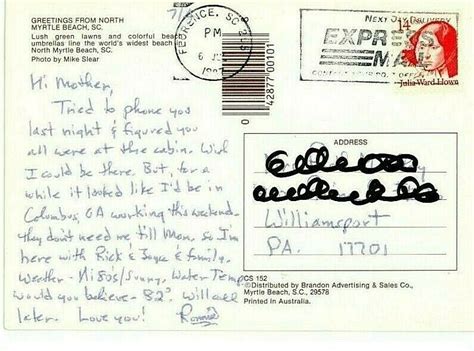 GREETINGS FROM NORTH
MYRTLE BEACH, SC,
Lush green lawns and colorful beach
umbrellas line the world's widest beach in
North Myrtle Beach, SC.
Photo by Mike Slear
Hi Mother,
Tried to phone you
last night & figured you
all were at the cabin. Wish
I could be there. But, for a
while it looked like I'd be in
Columbus, GA working this weekend-
they don't need me till Mon. so I'm
here with Rick & & family.
Weather - Hi 80s/Sunny, Water Temp
would you believe - 82°. Will call
later. Love you! Ronnie
FLORENCE, SC
PM
42877 00101
NEXT DAY DELIVERY
EXPRESS
MAIL
14
Julia Ward Howe
ADDRESS
Williamsport
PA. 17701
CS 152
©Distributed by Brandon Advertising & Sales Co.,
Myrtle Beach, S.C. 29578
Printed in Australia.